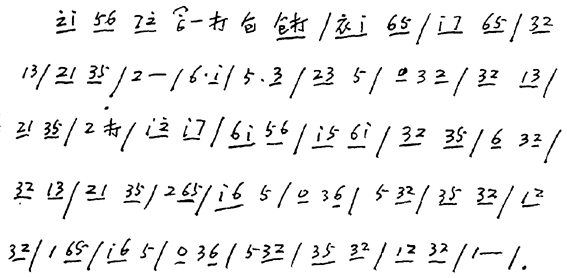 2̇i̇ 56 72̇ 6̇一打 仓 仓打/衣i̇ 65/i̇7 65/32
13/21 35/2—/6·i̇/5.3/23 5/032/32 13/
21 35/2 扌/i̇2̇ i̇7/6i̇ 56/i̇5 6i̇/32 35/6 32/
32 13/21 35/265/i̇6 5/0 36/5 32/35 32/12
32/1 65/i̇6 5/0 36/532/35 32/12 32/1—/.